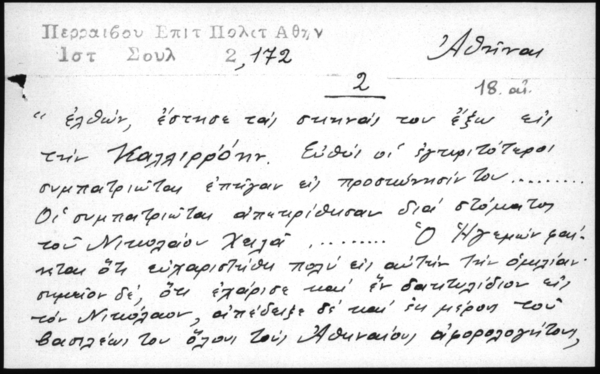 Περραιβου Επιτ Πολιτ Αθην
Ιστ Σουλ 2,172
Ἀθῆναι
2
18. αἰ.
" ἐλθών, ἔστησε τάς σκηνάς του ἔξω εἰς
τήν Καλλιρρόην. Εὐθύς οἱ ἐγκριτότεροι
συμπατριῶται ἐπῆγαν εἰς προσκύνησίν του.........
Οἱ συμπατριῶται ἀπεκρίθησαν διά στόματος
τοῦ Νικολάου Χειλᾶ ......... Ὁ Ἡγεμών φαί-
νεται ὅτι εὐχαριστήθη πολύ εἰς αὐτήν τήν ὁμιλίαν·
σημεῖον δέ, ὅτι ἐχάρισε καί ἕν δακτυλίδιον εἰς
τόν Νικόλαον, ἀπέδειξε δέ καί ἐκ μέρους τοῦ
βασιλέως του ὅλους τούς Ἀθηναίους ἀφορολογήτους,